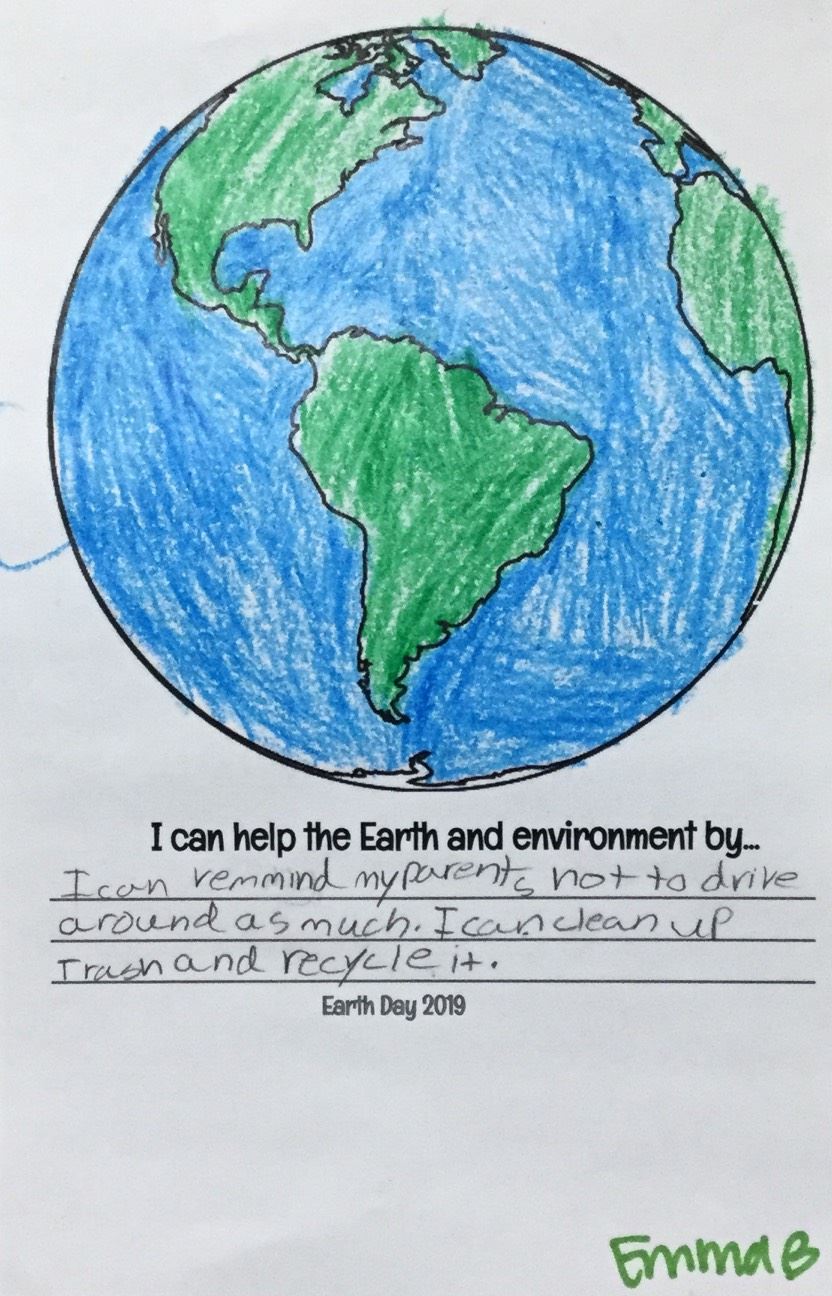 I can help the Earth and environment by...
I can remmind my parents not to drive
around as much. I can clean up
Trash and recycle it.
Earth Day 2019
Emma B